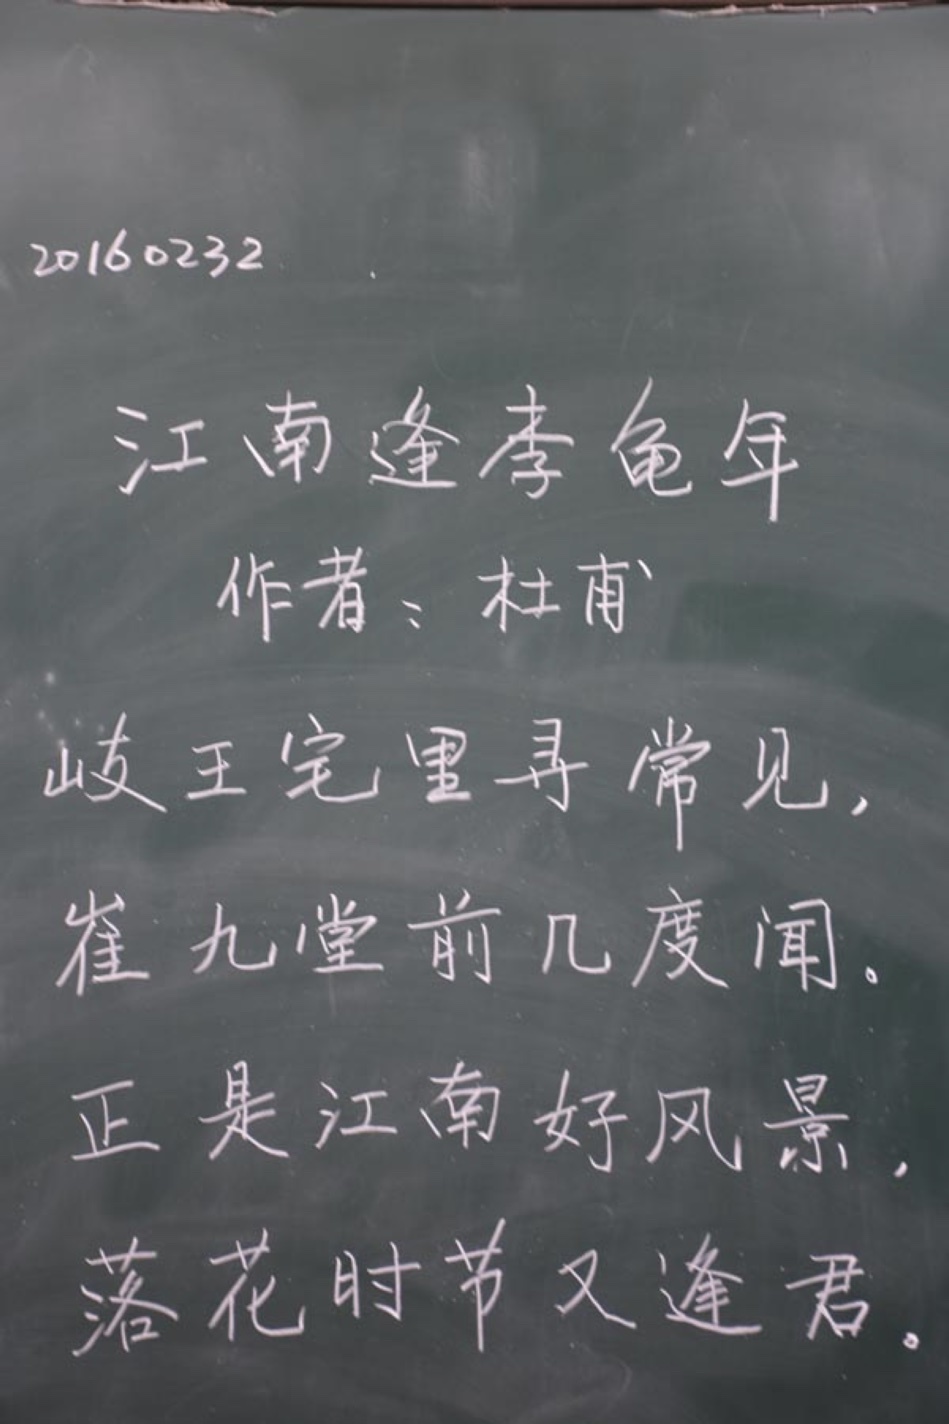 20160232
江南逢李龟年
作者:杜甫
岐王宅里寻常见,
崔九堂前几度闻。
正是江南好风景,
落花时节又逢君。